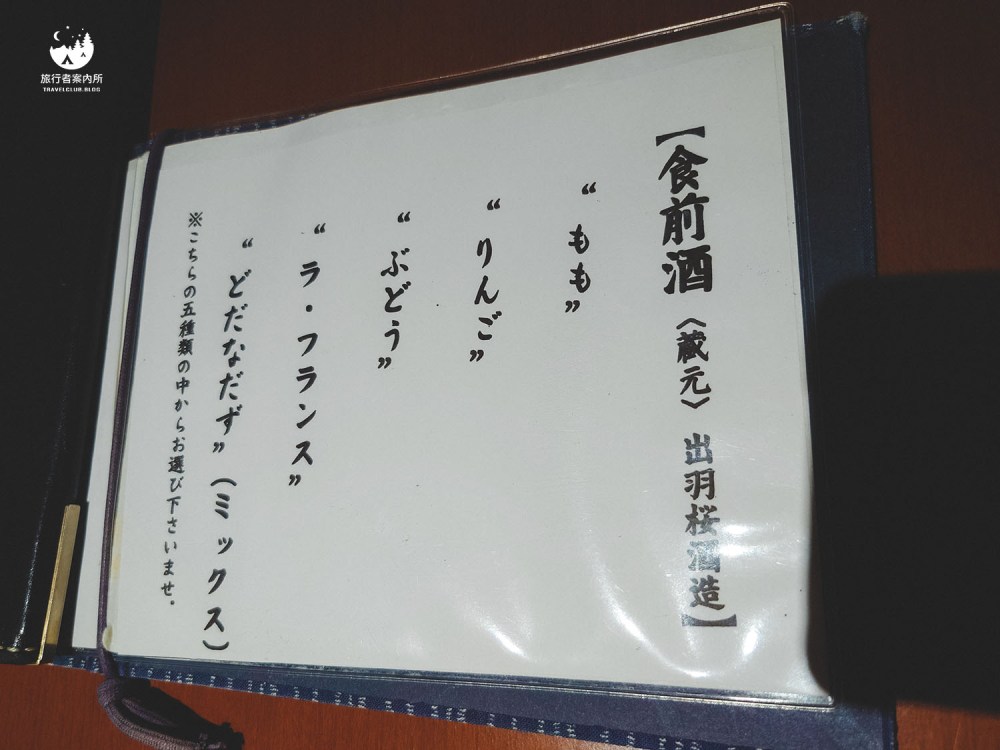 旅行者案内所
TRAVELCLUB.BLOG
【食前酒〈蔵元〉出羽桜酒造】
“もも”
“りんご”
“ぶどう”
“ラ・フランス”
“どだなだず”(ミックス)
※こちらの五種類の中からお選び下さいませ。